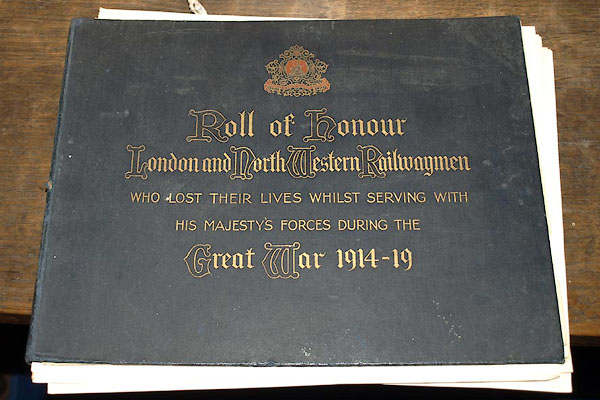 Roll of Honour
London and North Western Railwaymen
WHO LOST THEIR LIVES WHILST SERVING WITH
HIS MAJESTY'S FORCES DURING THE
Great War 1914-19